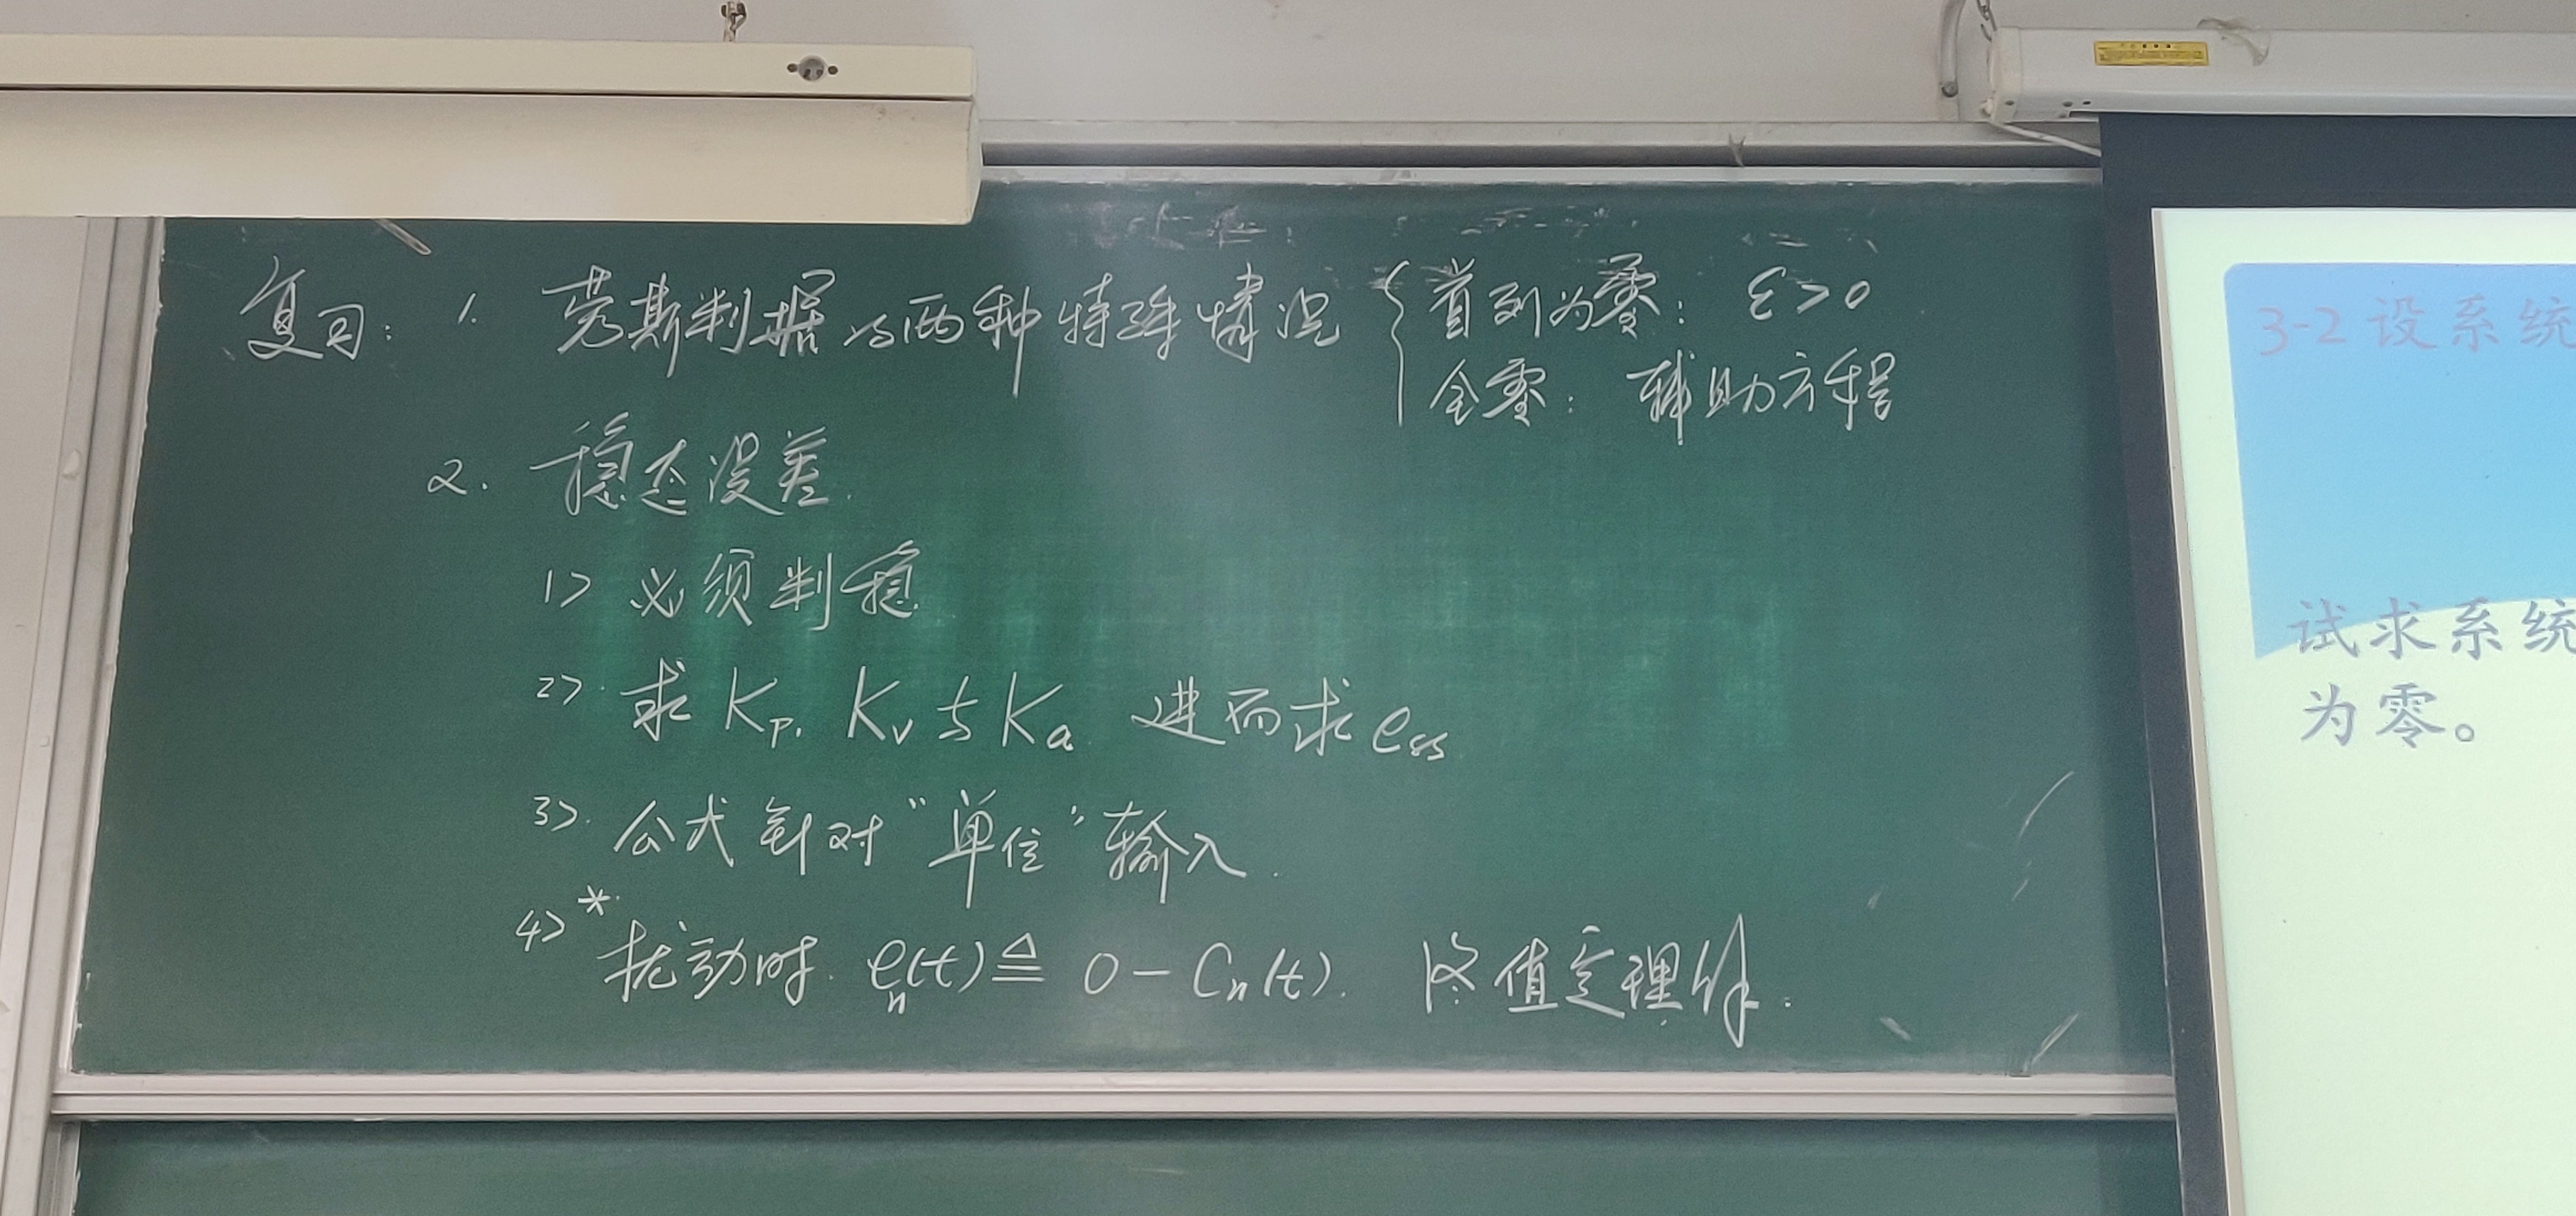 复习: 1. 劳斯判据与两种特殊情况 { 首列为零: ε>0
全零: 辅助方程
2. 稳态误差.
1> 必须判稳
2> 求 Kp. Kv 与 Ka 进而求 ess
3>. 公式针对“单位”输入.
4>* 扰动时. en(t) ≜ 0 - Cn(t). 终值定理解.
3-2 设系统
试求系统
为零。